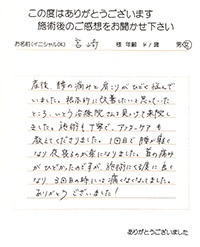 この度はありがとうございます
施術後のご感想をお聞かせ下さい
お名前(イニシャルOK) 宮崎 様 年齢 41歳 男・女
産後、腰の痛みと肩こりがひどく悩んで
いました。根本的に改善したいと思っていた
ところ、いとう治療院さんを見つけて来院し
ました。施術も丁寧で、アフターケアも
教えてくださりました。1回目で腰が軽く
なり夜寝るのが楽になりました。首の痛み
がひどかったのですが、施術にて徐々に良く
なり3回目の時には痛くなくなりました。
ありがとうございました!
ありがとうございました